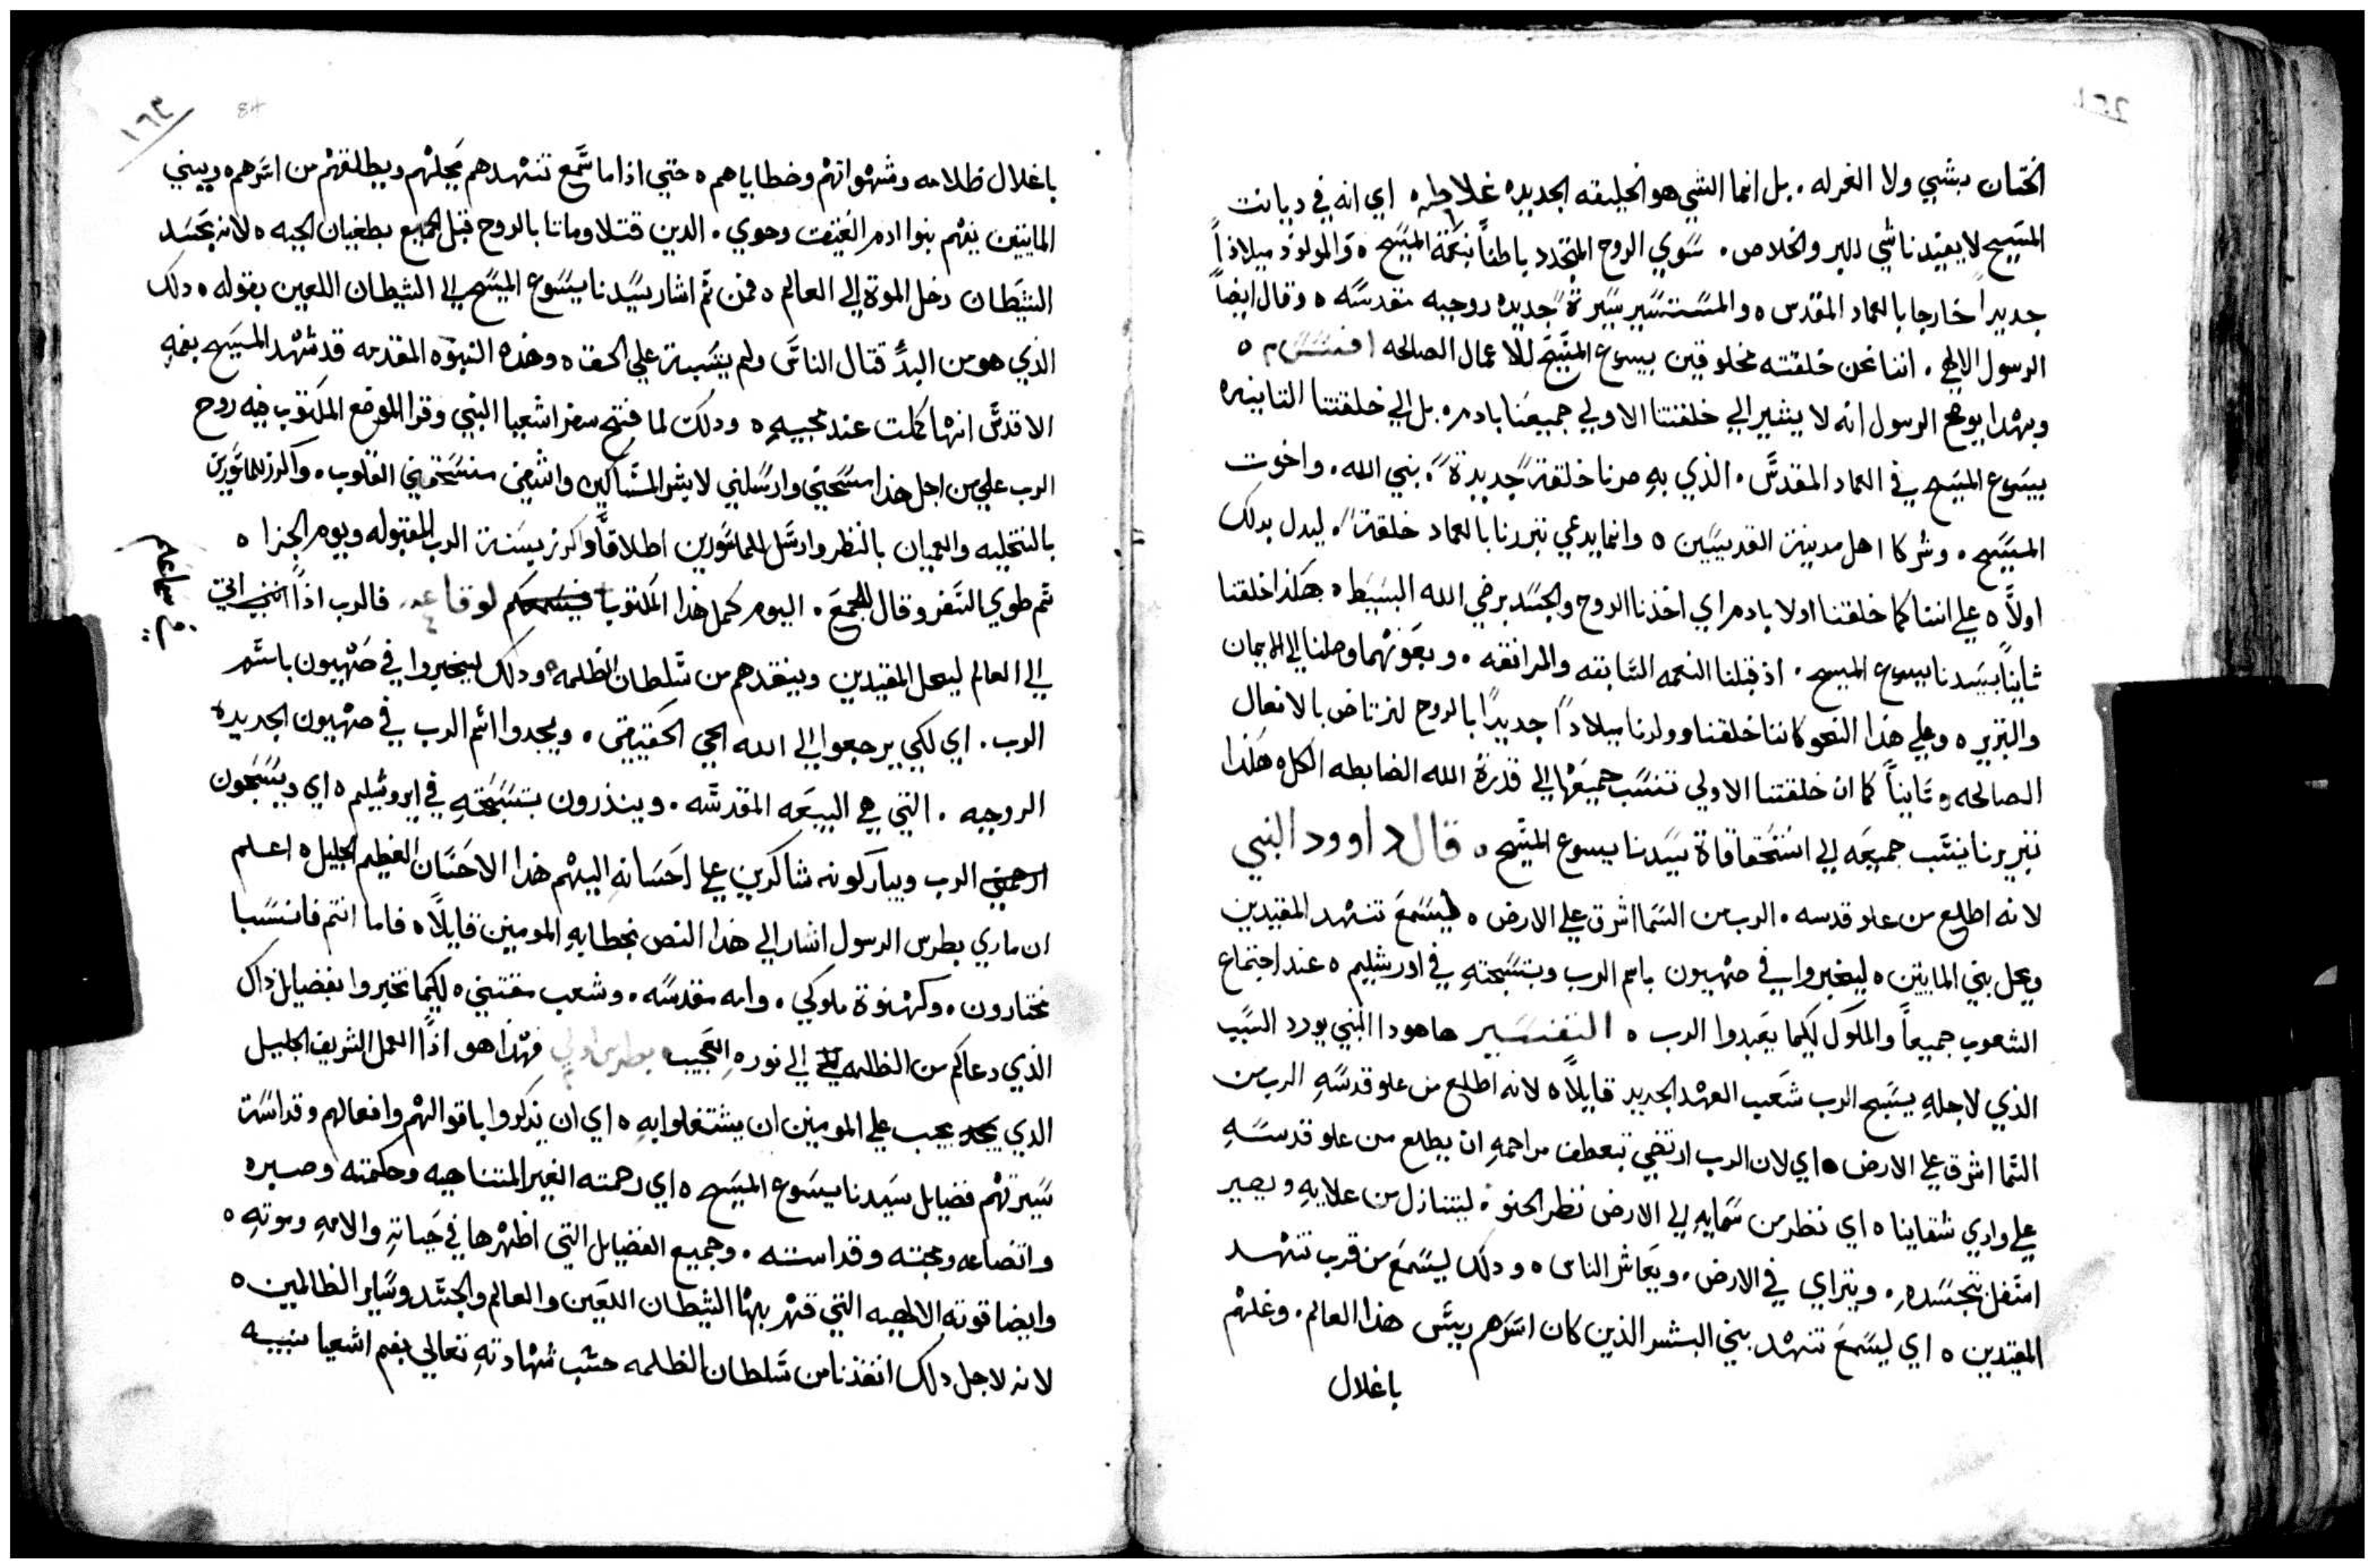 الختان بشي ولا الغرله . بل انما الشي هو الخليقه الجديده غلاطيه اي انه في ديانت
المسيح لا يفيدنا شي للبر والخلاص . سوي الروح المتجدد باطناً بنعمة المسيح ه والمولود ميلاداً
جديداً خارجا بالعماد المقدس ه والمستسير سيرةً جديده روحيه مقدسه ه وقال ايضاً
الرسول الالهي . اننا نحن خلقته مخلوقين بيسوع المسيح للاعمال الصالحه افسس م ه
وبهدا يوضح الرسول انه لا يشير الي خلقتنا الاولي جميعنا بادم ه بل الي خلقتنا التانيه
بيسوع المسيح في العماد المقدس . الذي به صرنا خلقةً جديدةً . بني الله . واخوت
المسيح . وشركا اهل مدينة القديسين ه وانما يدعي تبررنا بالعماد خلقةً ه ليدل بدلك
اولاً ه علي اننا كما خلقنا اولا بادم اي اخذنا الروح والجسد برضي الله البسيط ه هكذا خلقنا
ثانياً بسيدنا يسوع المسيح . اذ قبلنا النعمه السابقه والمرافقه . وبعونهما وصلنا الي الايمان
والتبرير ه وعلي هذا النحو كاننا خلقنا وولدنا ميلاداً جديداً بالروح لنرتاض بالافعال
الصالحه ه تانياً كما ان خلقتنا الاولي تنسب جميعها الي قدرة الله الضابطه الكل ه هكذا
تبريرنا ينسب جميعه الي استحقاقاة سيدنا يسوع المسيح ه قال داوود النبي
لانه اطلع من علو قدسه . الرب من السما اشرق علي الارض ه ليسمع تنهد المقيدين
ويحل بني المايتين ه ليخبروا في صهيون باسم الرب وبتسبحته في اورشليم ه عند اجتماع
الشعوب جميعاً والملوك لكيما يعبدوا الرب ه التفسير هاهودا النبي يورد السبب
الذي لاجله يسبح الرب شعب العهد الجديد قايلاً ه لانه اطلع من علو قدسه الرب من
السما اشرق علي الارض ه اي لان الرب ارتضي بتعطف مراحمه ان يطلع من علو قدسه
علي وادي شقاينا ه اي نظر من سمايه الي الارض نظر الحنو . ليتنازل من علايه ويصير
اسفل بتجسده . ويتراي في الارض . ويعاشر الناس ه ودلك ليسمع من قرب تنهد
المقيدين ه اي ليسمع تنهد بني البشر الذين كان اسرهم رييس هذا العالم . وغلهم
باغلال
١٦٣
84
باغلال ظلامه وشهواتهم وخطاياهم ه حتي اذا ما سمع تنهدهم يحلهم ويطلقهم من اسرهم ه وبني
المايتين يفهم بنوا ادم العتيقت وحوي . الدين قتلا وماتا بالروح قبل الجميع بطغيان الحيه ه لانه بحسد
الشيطان دخل الموة الي العالم ه فمن ثم اشار سيدنا يسوع المسيح الي الشيطان اللعين بقوله ه دلك
الذي هو من البدء قتال الناس ولم يثبت علي الحق ه وهذه النبوه المقدمه قد شهد المسيح بفمه
الاقدس انها كملت عند مجييه ه ودلك لما فتح سفر اشعيا النبي وقرا الموضع المكتوب فيه روح
الرب علي من اجل هذا مسحني وارسلني لابشر المساكين واشفي منسحقين القلوب . واكرز للماسورين
بالتخليه والعميان بالنظر وارسل الماسورين اطلاقاً واكرز بسنة الرب المقبوله ويوم الجزا ه
ثم طوي السفر وقال للجمع . اليوم كمل هذا المكتوب لوقا ٤ فالرب اذاً اتي
في سماعكم
الي العالم ليحل المقيدين وينقدهم من سلطان الظلمه ه ودلك ليخبروا في صهيون باسم
الرب . اي لكي يرجعوا الي الله الحي الحقيقي . ويمجدوا اسم الرب في صهيون الجديدة
الروحيه . التي هي البيعه المقدسه . وينذرون بتسبحته في ايروشليم ه اي ويسبحون
الرب ويباركونه شاكرين علي احسانه اليهم هذا الاحسان العظيم الجليل ه اعلم
ان ماري بطرس الرسول اشار الي هذا النص بخطابه المومنين قايلاً ه فاما انتم فانسبا
مختارون . وكهنوة ملوكي . وامه مقدسه . وشعب مقتني ه لكيما تخبروا بفضايل ذاك
الذي دعاكم من الظلمه الي نوره العجيب بطرس اولي فهذا هو اذاً العمل الشريف الجليل
الدي يجب علي المومنين ان يشتغلوا به ه اي ان يذكروا باقوالهم وافعالهم وقداسة
سيرتهم فضايل سيدنا يسوع المسيح ه اي رحمته الغير المتناهيه وحكمته وصبره
واتضاعه ومحبته وقداسته . وجميع الفضايل التي اظهرها في حياته والامه وموته ه
وايضا قوته الالهيه التي قهر بها الشيطان اللعين والعالم والجسد وساير الظالمين ه
لانه لاجل دلك انقذنا من سلطان الظلمه حسب شهادته تعالي بفم اشعيا نبيه